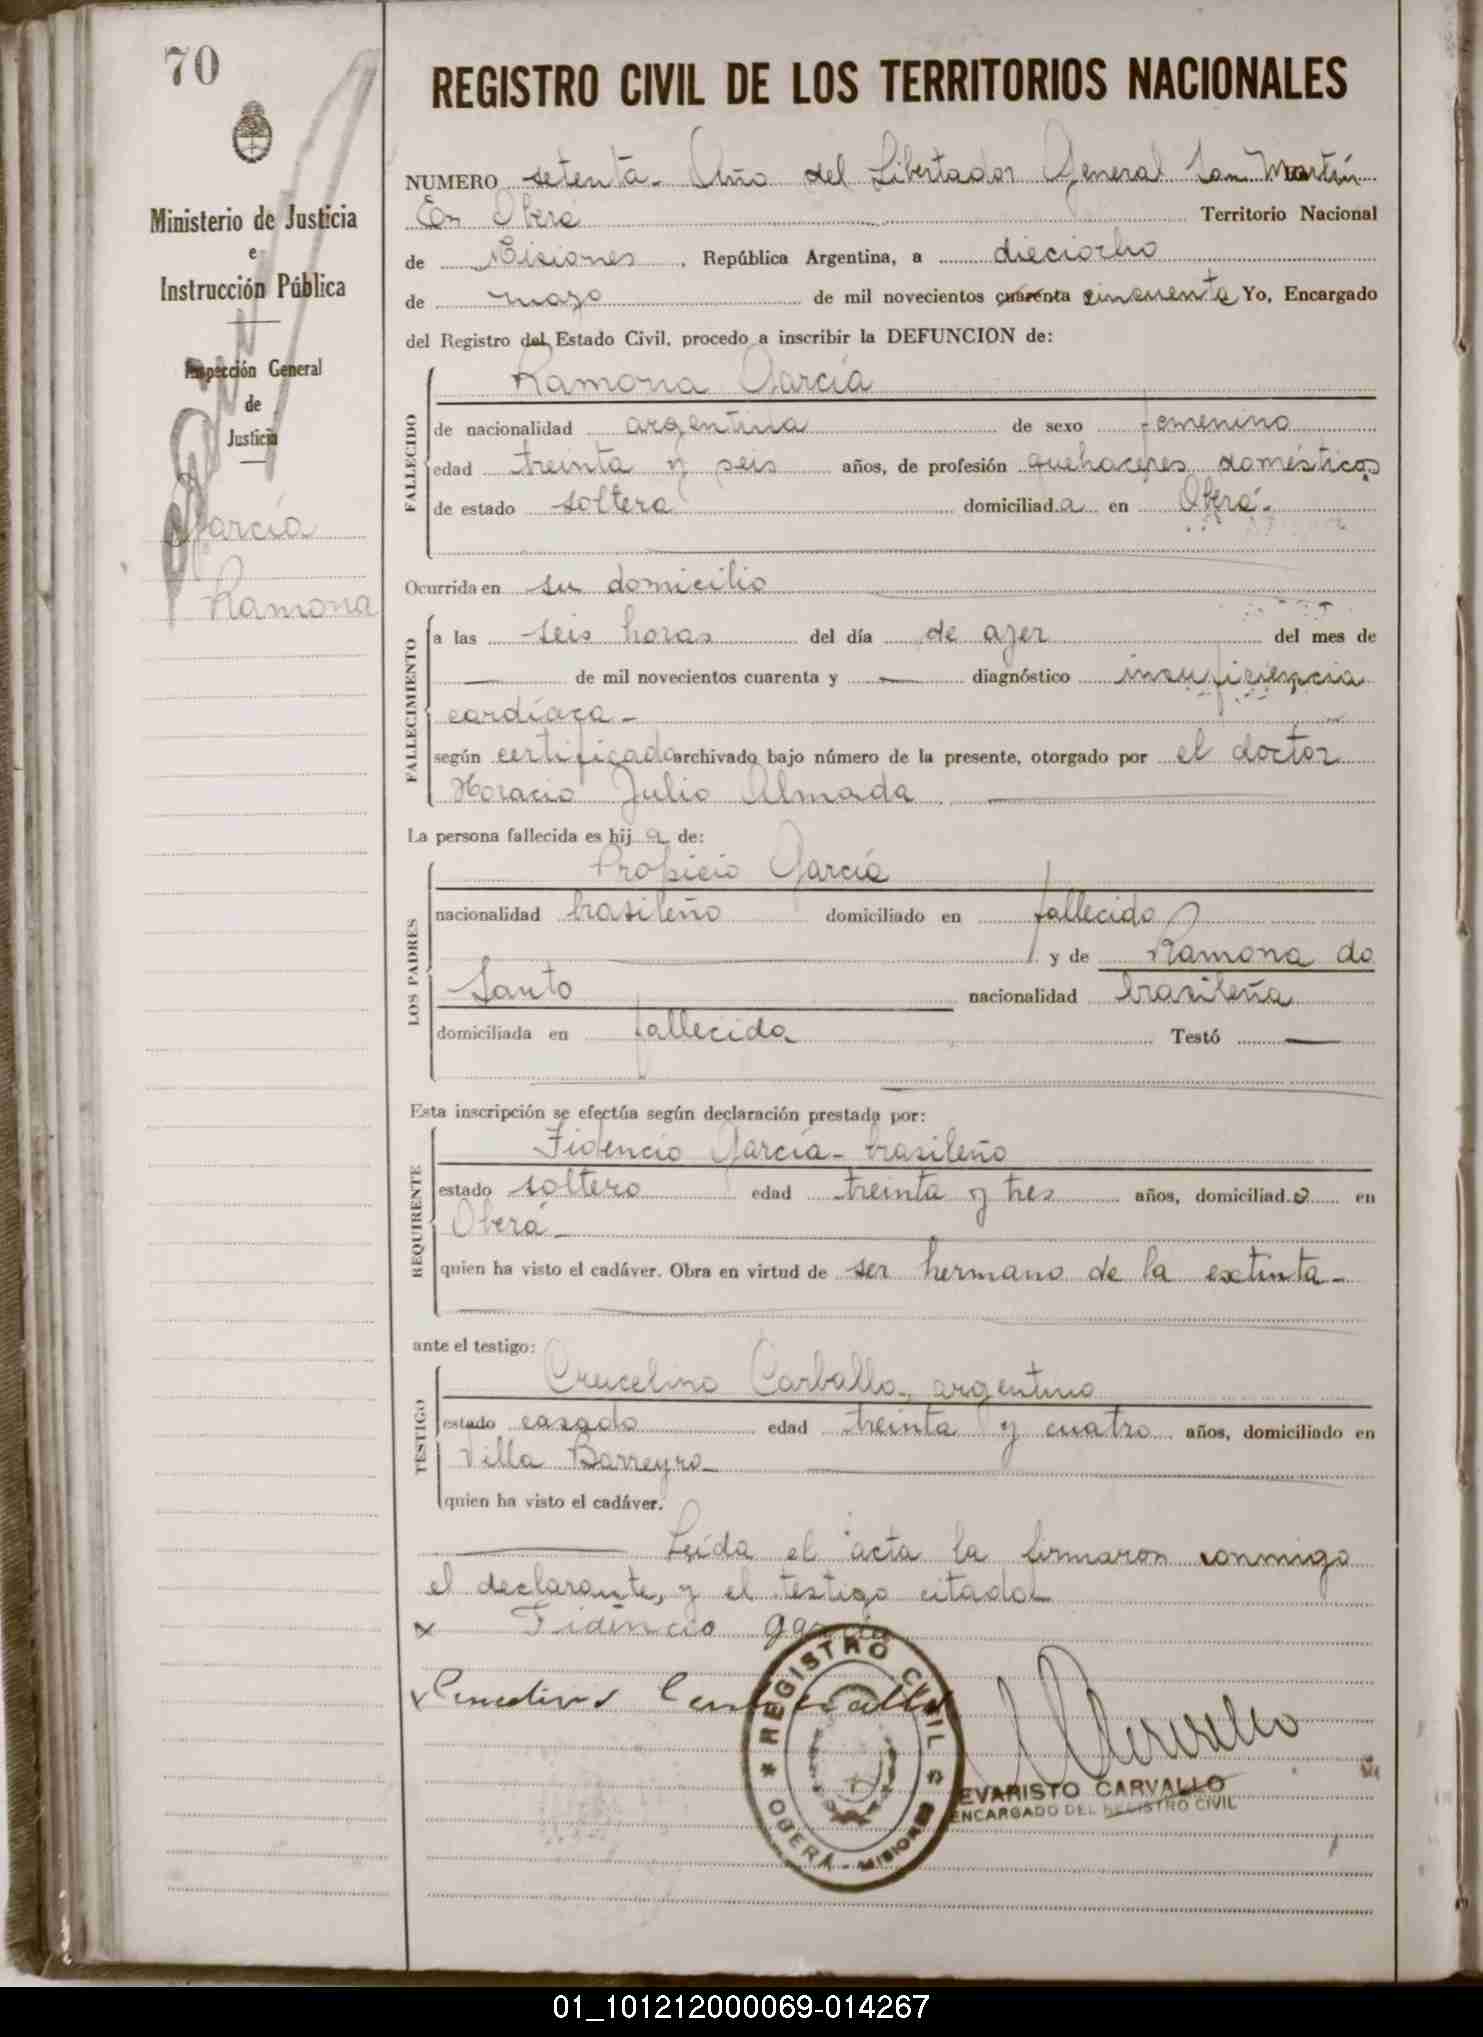 70
REGISTRO CIVIL DE LOS TERRITORIOS NACIONALES
Ministerio de Justicia
e
Instrucción Pública
Inspección General
de
Justicia
García
Ramona
NUMERO setenta- Año del Libertador General San Martín
En Obera Territorio Nacional
de Misiones, República Argentina, a dieciocho
de mayo de mil novecientos cuarenta cincuenta Yo, Encargado
del Registro del Estado Civil, procedo a inscribir la DEFUNCION de:
FALLECIDO
Ramona García
de nacionalidad argentina de sexo femenino
edad treinta y seis años, de profesión quehaceres domésticos
de estado soltera domiciliad a en Oberá-
Ocurrida en su domicilio
FALLECIMIENTO
a las seis horas del día de ayer del mes de
— de mil novecientos cuarenta y — diagnóstico insuficiencia
cardíaca-
según certificado archivado bajo número de la presente, otorgado por el doctor
Horacio Julio Almada
La persona fallecida es hij a de:
LOS PADRES
Propicio García
nacionalidad brasileño domiciliado en fallecido
y de Ramona do
Santo nacionalidad brasileña
domiciliada en fallecida Testó —
Esta inscripción se efectúa según declaración prestada por:
REQUIRENTE
Fidencio García- brasileño
estado soltero edad treinta y tres años, domiciliad o en
Oberá-
quien ha visto el cadáver. Obra en virtud de ser hermano de la extinta-
ante el testigo:
TESTIGO
Crucelino Carballo, argentino
estado casado edad treinta y cuatro años, domiciliado en
Villa Barreyro
quien ha visto el cadáver.
Leída el acta la firmaron conmigo
el declarante, y el testigo citado
x Fidencio garcia
REGISTRO CIVIL
OBERÁ - MISIONES
EVARISTO CARVALLO
ENCARGADO DEL REGISTRO CIVIL
01_101212000069-014267